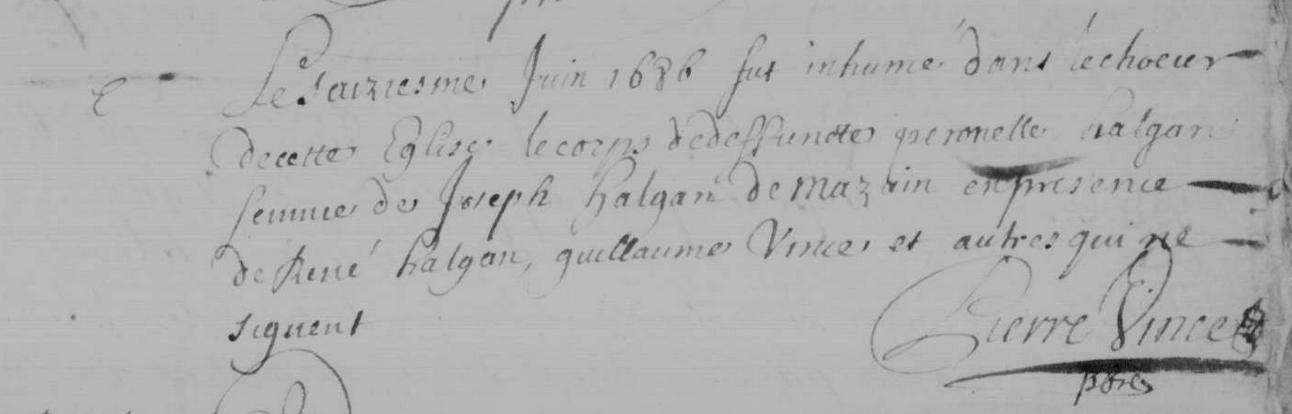 Le saiziesme Juin 1686 fut inhumé dans le choeur
de cette Eglise le corps de deffuncte peronelle halgan
femme de Joseph halgan de mazain en presence
de René halgan, guillaume Vince et autres qui ne
signent
Pierre Vince
pbre